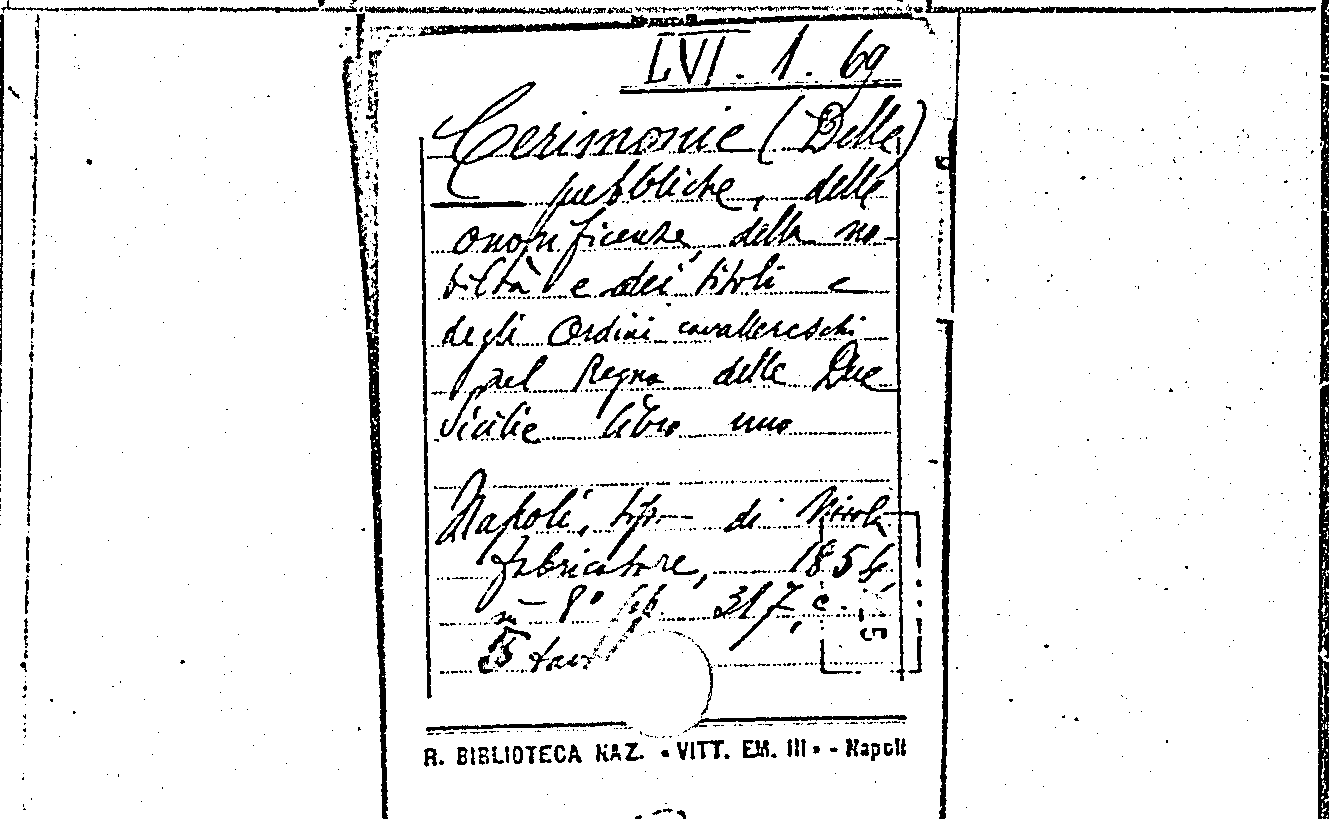 LVI. 1. 69
Cerimonie (Delle)
pubbliche, delle
onorificenze, della no-
biltà e dei titoli e
degli Ordini cavallereschi
nel Regno delle Due
Sicilie libro uno
Napoli, tip. di Nicola
fabricatore, 1854,
in 8° pp. 317, c.
5 tav
5
R. BIBLIOTECA NAZ. « VITT. EM. III » - Napoli